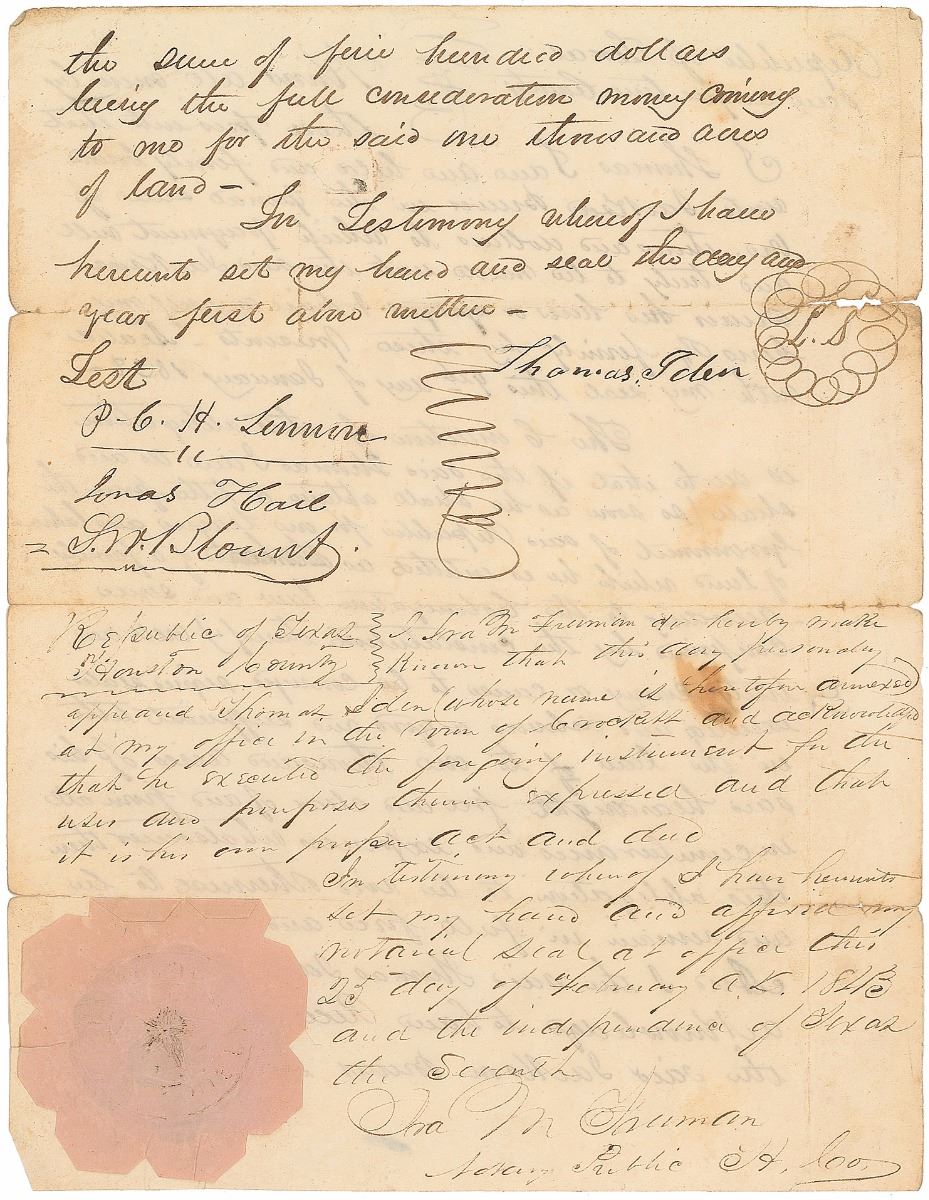 the sum of five hundred dollars
being the full consideration money coming
to me for the said one thousand acres
of land –
In Testimony whereof I have
hereunto set my hand and seal the day and
year first above written –
Test
Thomas Iden
L. S
P. C. H. Lennon
Jonas Hail
S. W. Blount.
Republic of Texas } I. Ira M Freeman do hereby make
Houston County } Known that this day personaly
appeard Thomas Iden (whose name is heretofore annexed)
at my office in the town of Crockett and acknowledged
that he executed the foregoing instrument for the
uses and purposes therein expressed and that
it is his own proper act and deed
In testimony whereof I have hereunto
set my hand and affixed my
notarial seal at office this
25 day of February A.D. 1843
and the independence of Texas
the Seventh
Ira M Freeman
Notary Public H. Co.